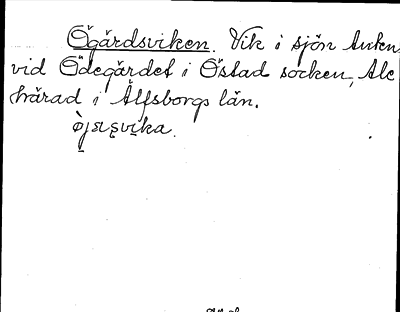 Ögärdsviken. Vik i sjön Anten
vid Ödegärdet i Östad socken, Ale
härad i Älfsborgs län.